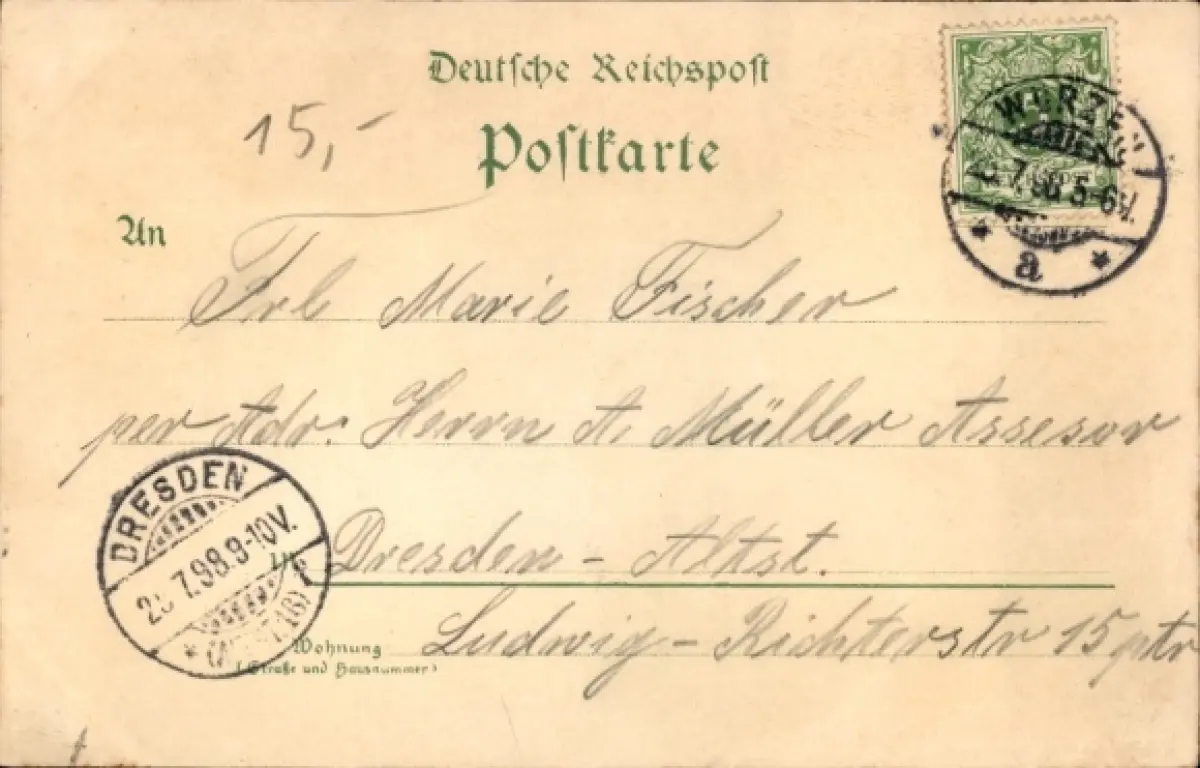 Deutsche Reichspost
15,-
Postkarte
WURZEN
7.98 5-6V.
a
An
Frl Marie Fischer
per Adr: Herrn A Müller Assesor
DRESDEN
7.98.9-10V.
in Dresden - Altst.
Wohnung
(Straße und Hausnummer)
Ludwig-Richterstr 15 ptr